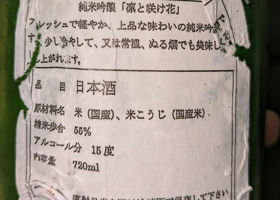 純米吟醸「凛と咲け花」
フレッシュで軽やか、上品な味わいの純米吟醸
す。少し冷やして、又は常温、ぬる燗でも美味し
し上がれます。
品 目 日本酒
原材料名 米(国産)、米こうじ(国産米)
精米歩合 55%
アルコール分 15度
内容量 720ml
直射日光
保存して下さい